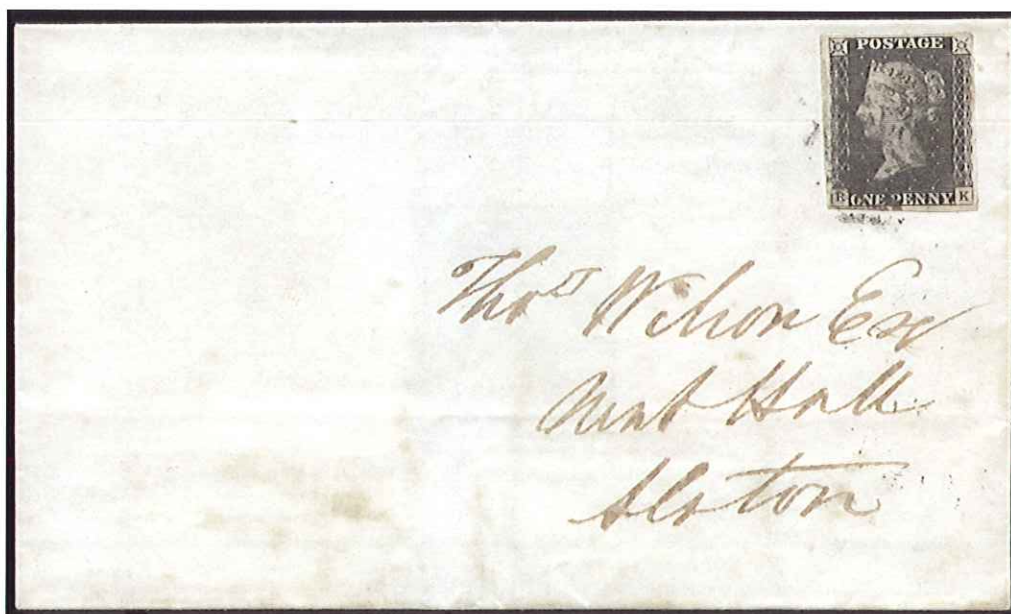 POSTAGE
B ONE PENNY K
Thos Wilson Esq
Nent Hall
Alston